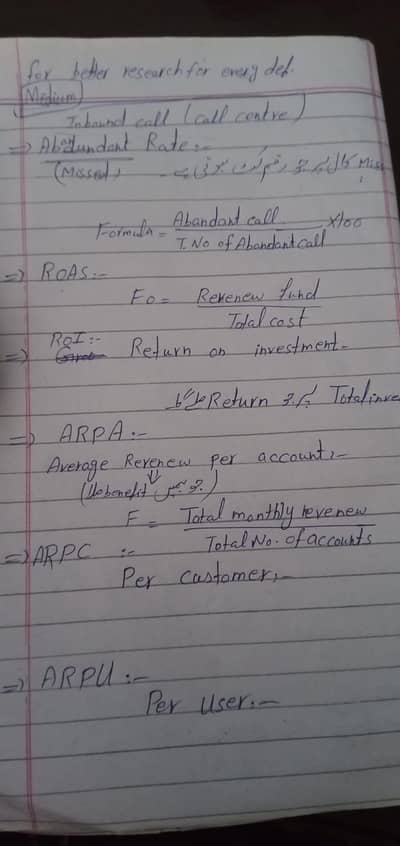 for better research for every def.
Medium
Inbound call (call centre)
=> Abandundant Rate:-
(Missed)
Formula = Abandant call / T.No of Abandant call x100
=> ROAS:-
Fo = Revenew fund / Total cost
=> ROI:- Return on investment-
Return جو Total inve
=> ARPA:-
Average Revenew per account:-
(benefit جو ہمیں)
F = Total monthly revenew / Total No. of accounts
=> ARPC :-
Per customer:-
=> ARPU:-
Per user:-